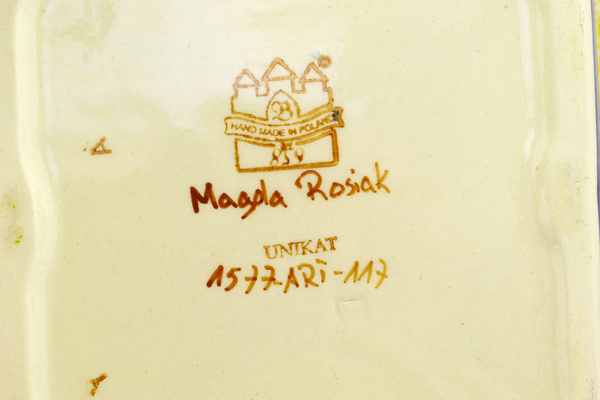 HAND MADE IN POLAND
859
Magda Rosiak
UNIKAT
1577ARI-117